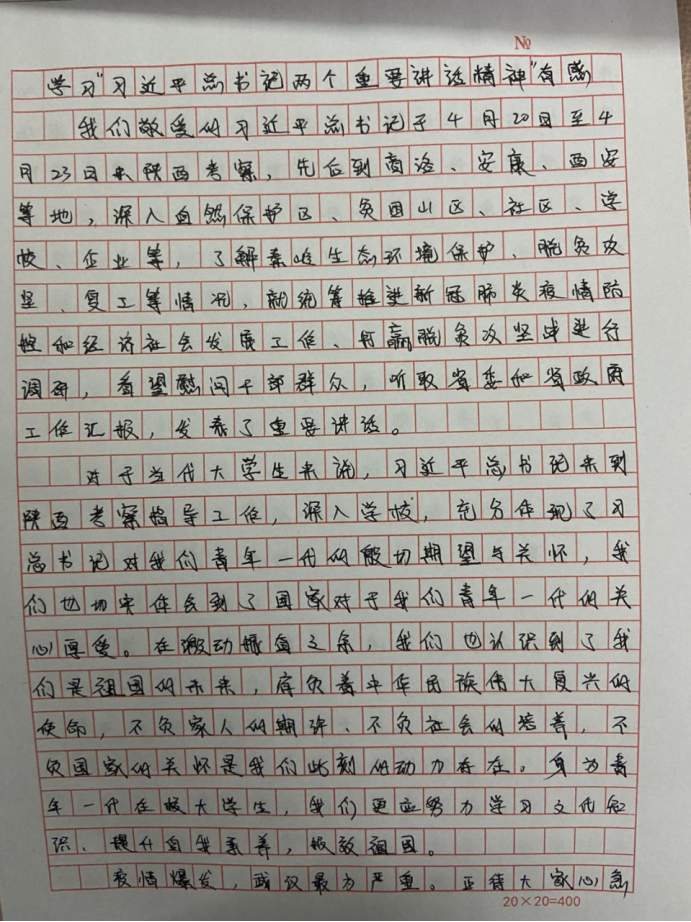 №
学习“习近平总书记两个重要讲话精神”有感
我们敬爱的习近平总书记于4月20日至4
月23日来陕西考察，先后到商洛、安康、西安
等地，深入自然保护区、贫困山区、社区、学
校、企业等，了解秦岭生态环境保护、脱贫攻
坚、复工等情况，就统筹推进新冠肺炎疫情防
控和经济社会发展工作、打赢脱贫攻坚战进行
调研，看望慰问干部群众，听取省委和省政府
工作汇报，发表了重要讲话。
对于当代大学生来说，习近平总书记来到
陕西考察指导工作，深入学校，充分体现了习
总书记对我们青年一代的殷切期望与关怀，我
们也切实体会到了国家对于我们青年一代的关
心厚爱。在激动振奋之余，我们也认识到了我
们是祖国的未来，肩负着中华民族伟大复兴的
使命，不负家人的期许、不负社会的培养，不
负国家的关怀是我们此刻的动力存在。身为青
年一代在校大学生，我们更应努力学习文化知
识、提升自我素养，报效祖国。
疫情爆发，武汉最为严重。正待大家心急
20×20=400